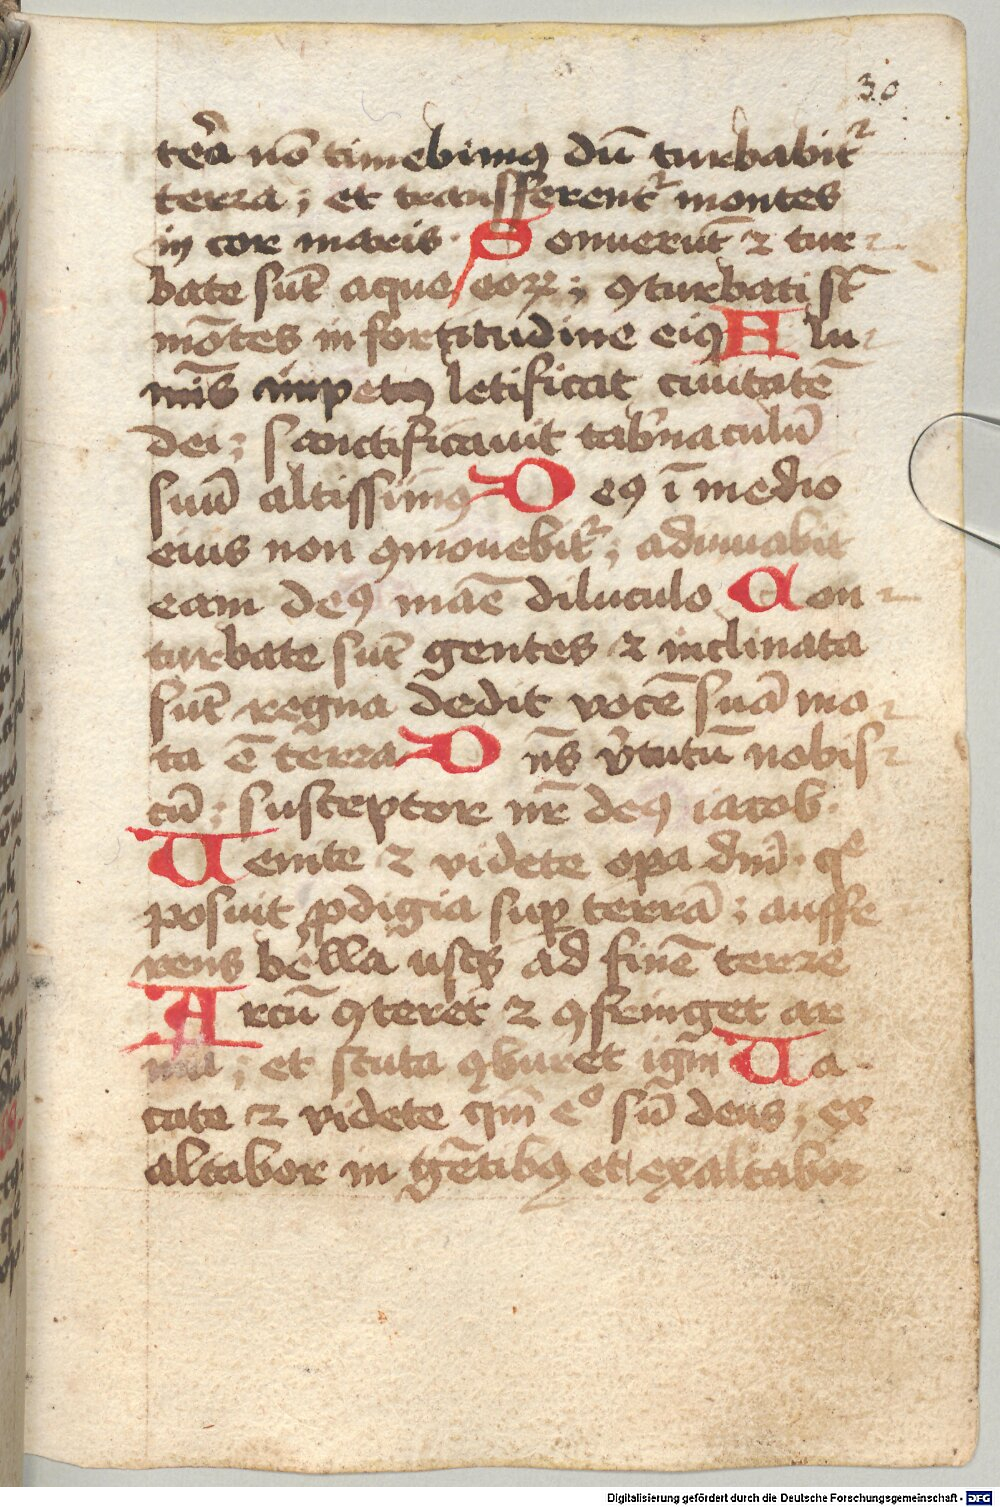 30
ter̄a nō timebimꝰ dū turbabit᷑
terra ; et transfferent᷑ montes
in cor maris · Sonuerūt ⁊ tur⸗
bate sūt aque eoꝝ ; ꝯturbati sт̄
mōtes in fortitudine eiꝰ Flu⸗
mīs impetꝰ letificat ciuitatē
dei ; sanctificauit tab̉naculū
suū altissimꝰ Deꝰ ī medio
eius non ꝯmouebit᷑ ; adiuuabit
eam deꝰ māe diluculo Con⸗
turbate sūt gentes ⁊ inclinata
sūt regna dedit vocē suā mo⸗
ta ē terra Dn̄s v̉tutū nobis⸗
cū ; susceptor nr̄ deꝰ iacob ·
Uenite ⁊ videte opa dn̄i · qͤ
posuit ꝓdigia suꝑ terrā ; auffe
rens bella usqꝫ ad finē terre
Arcū ꝯteret ⁊ ꝯfringet ar
ma ; et scuta ꝯburet igni Ua⸗
cate ⁊ videte qm̄ eᵒ sū deus ; ex
altabor in gētibꝰ et exaltabor
Digitalisierung gefördert durch die Deutsche Forschungsgemeinschaft - DFG